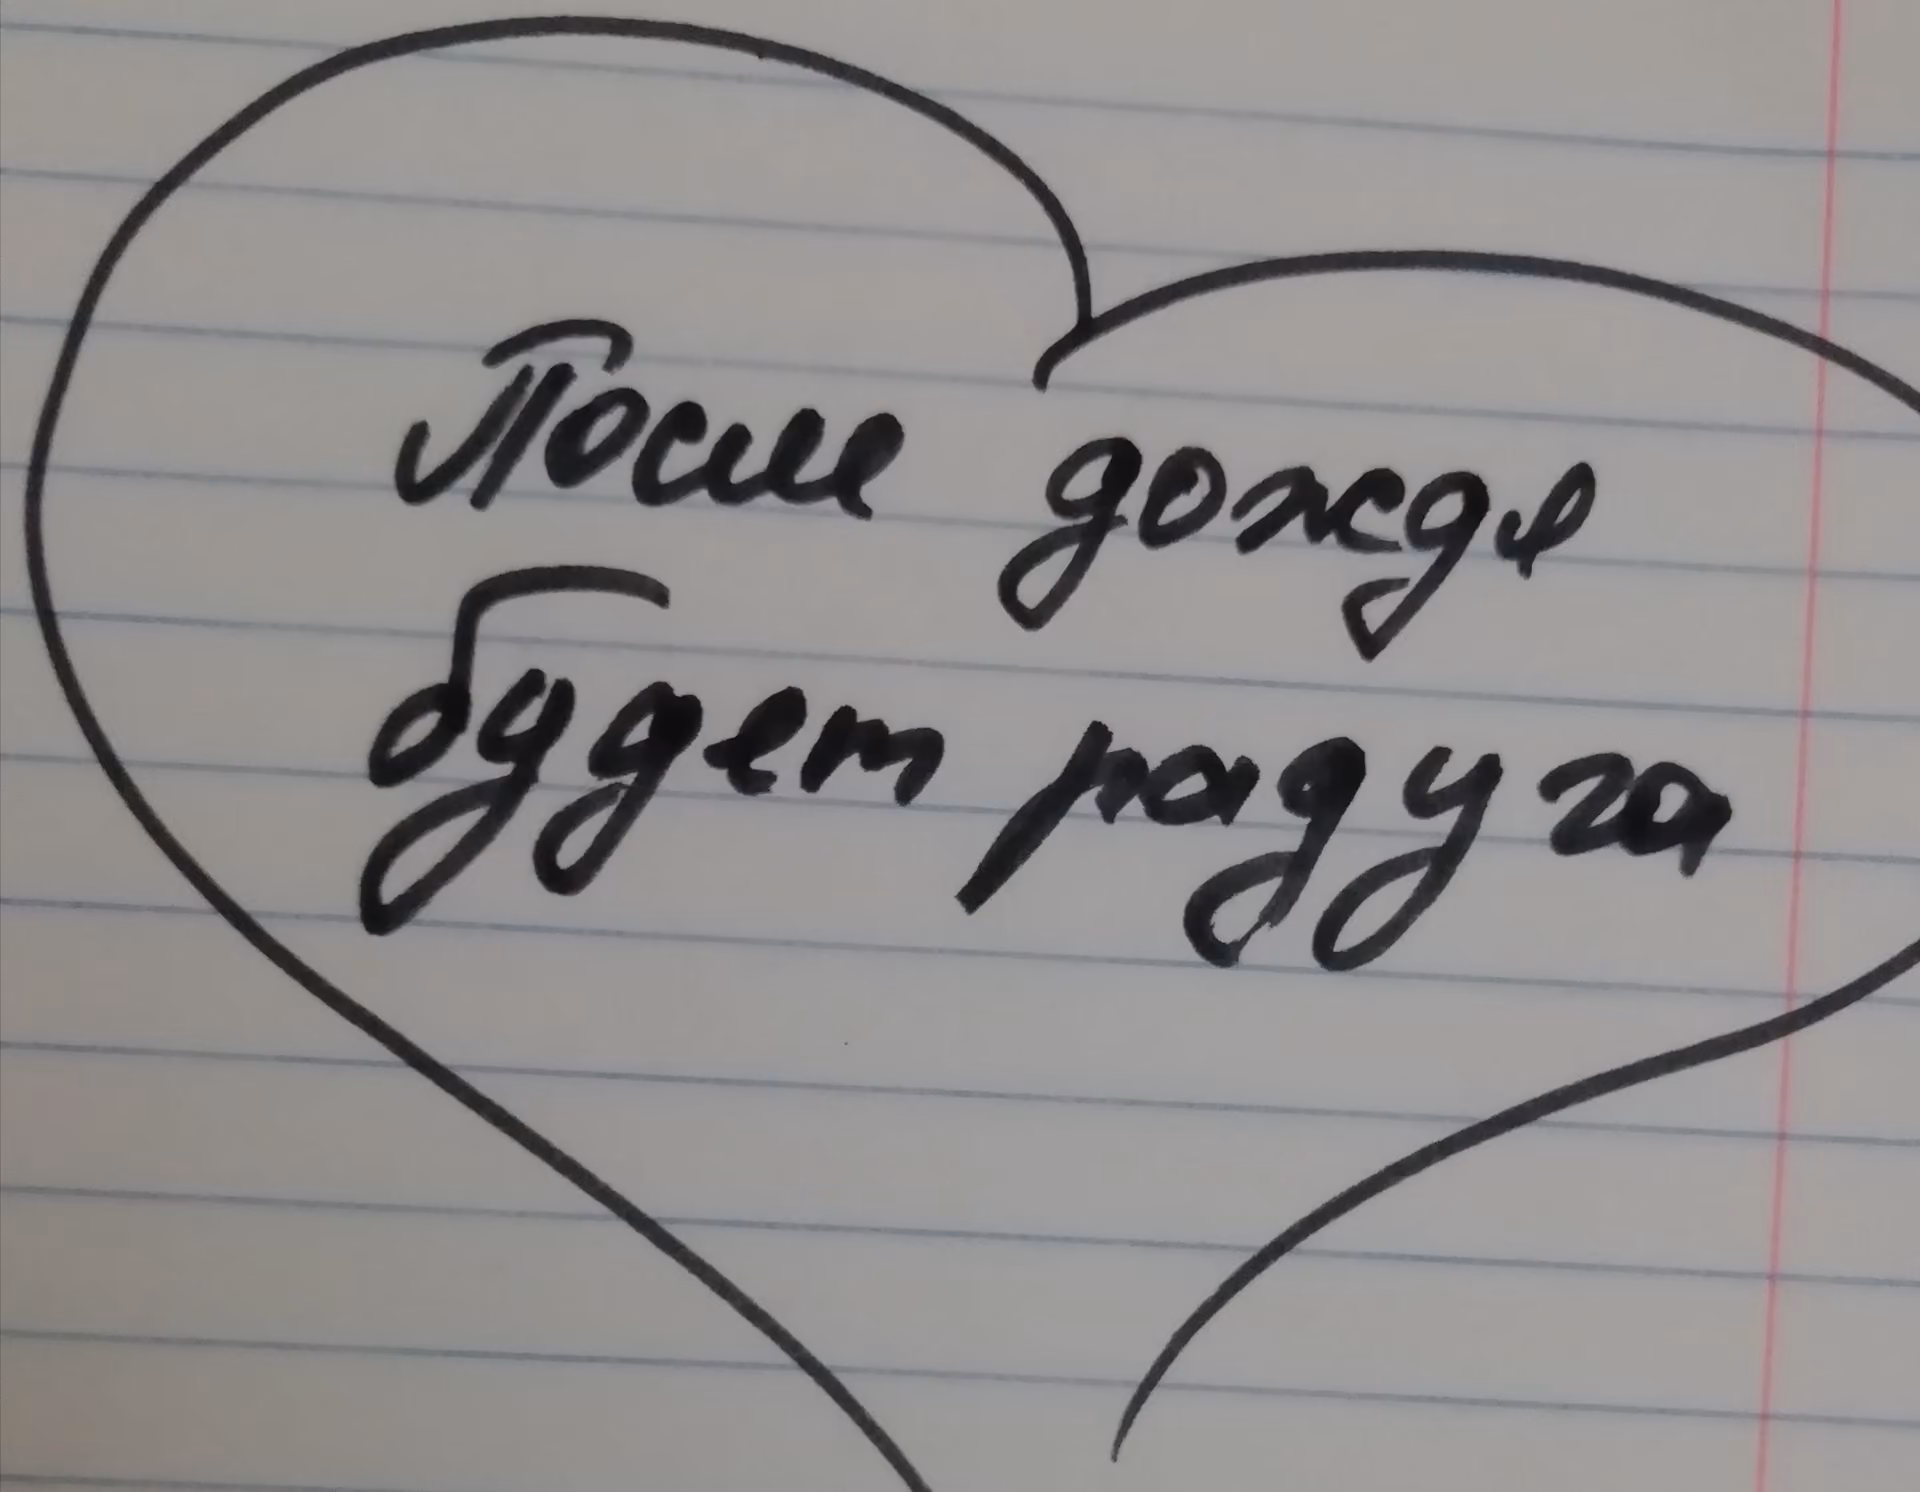 После дождя
будет радуга